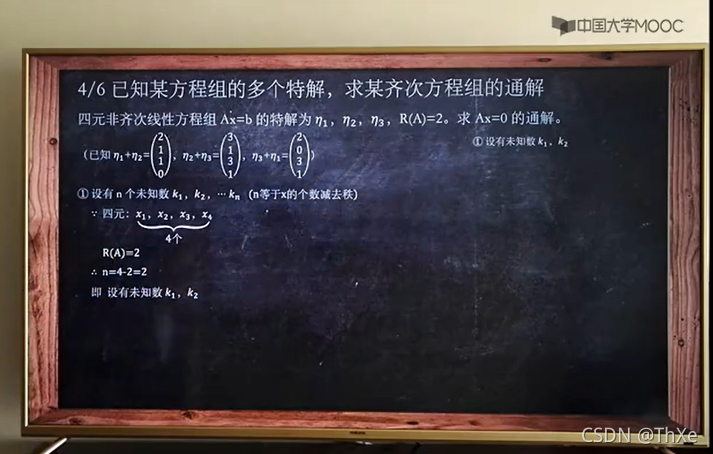 中国大学MOOC
4/6 已知某方程组的多个特解，求某齐次方程组的通解
四元非齐次线性方程组 Ax=b 的特解为 η₁，η₂，η₃，R(A)=2。求 Ax=0 的通解。
（已知 η₁+η₂=(2 1 1 0)，η₂+η₃=(3 1 3 1)，η₃+η₁=(2 0 3 1)）
① 设有未知数 k₁，k₂
① 设有 n 个未知数 k₁，k₂，⋯ kₙ （n等于x的个数减去秩）
∵ 四元：x₁，x₂，x₃，x₄
4个
R(A)=2
∴ n=4-2=2
即 设有未知数 k₁，k₂
CSDN @ThXe